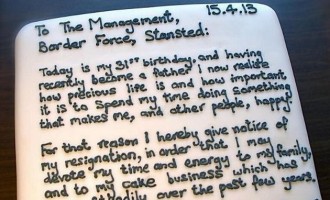 15.4.13
To The Management,
Border Force, Stansted:
Today is my 31st birthday, and having
recently become a father I now realise
how precious life is and how important
it is to spend my time doing something
that makes me, and other people, happy.
For that reason I hereby give notice of
my resignation, in order that I may
devote my time and energy to my family,
and to my cake business which has
over the past few years.